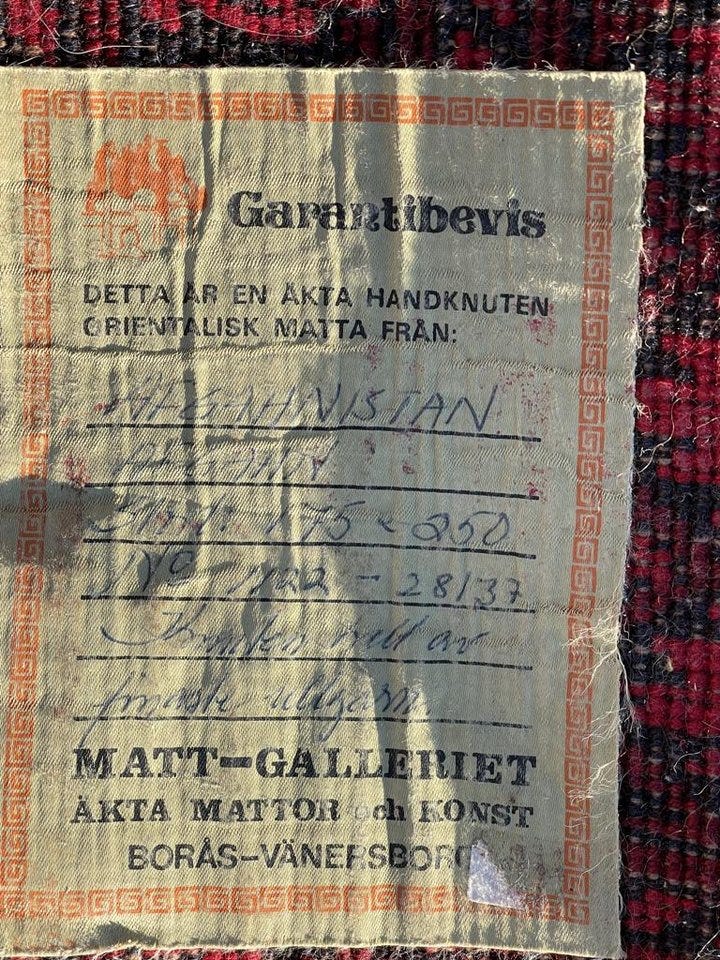 Garantibevis
DETTA ÄR EN ÄKTA HANDKNUTEN
ORIENTALISK MATTA FRÅN:
AFGAHNISTAN
175 x 250
No 1122 - 28137
av
finaste ullgarn
MATT-GALLERIET
ÄKTA MATTOR och KONST
BORÅS-VÄNERSBORG